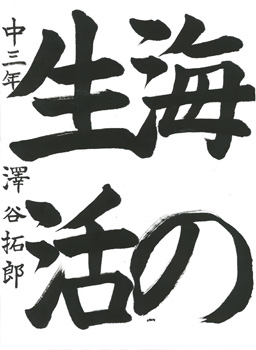 海の
生活
中三年 澤谷拓郎